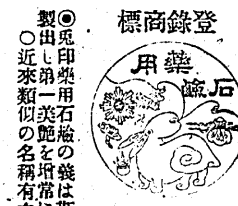 登錄商標
藥用
石鹼
◉兎印藥用石鹼の義は
製出し第一美艶を增常
○近來類似の名稱有